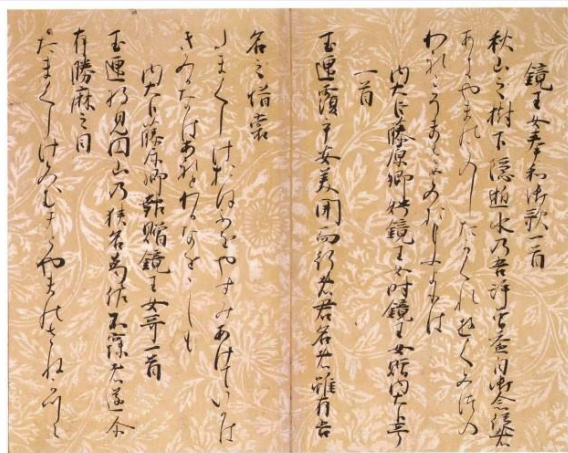 鏡王女奉和御歌一首
秋山之樹下隠逝水乃吾許曽益目御念従者
あきやまのこのしたかくれゆくみつの
われこそまさ
内大臣藤原卿娉鏡王女時鏡王女贈内大臣哥
一首
玉匣覆乎安美開而行者君名者雖有吾
名之惜裳
たまくしけおほふをやすみあけていなは
きみかなはあれとわかなをしも
内大臣藤原卿報贈鏡王女哥一首
玉匣将見円山乃狭名葛佐不寐者遂尓
有勝麻之目
たまくしけみむまとやまのさねかつら